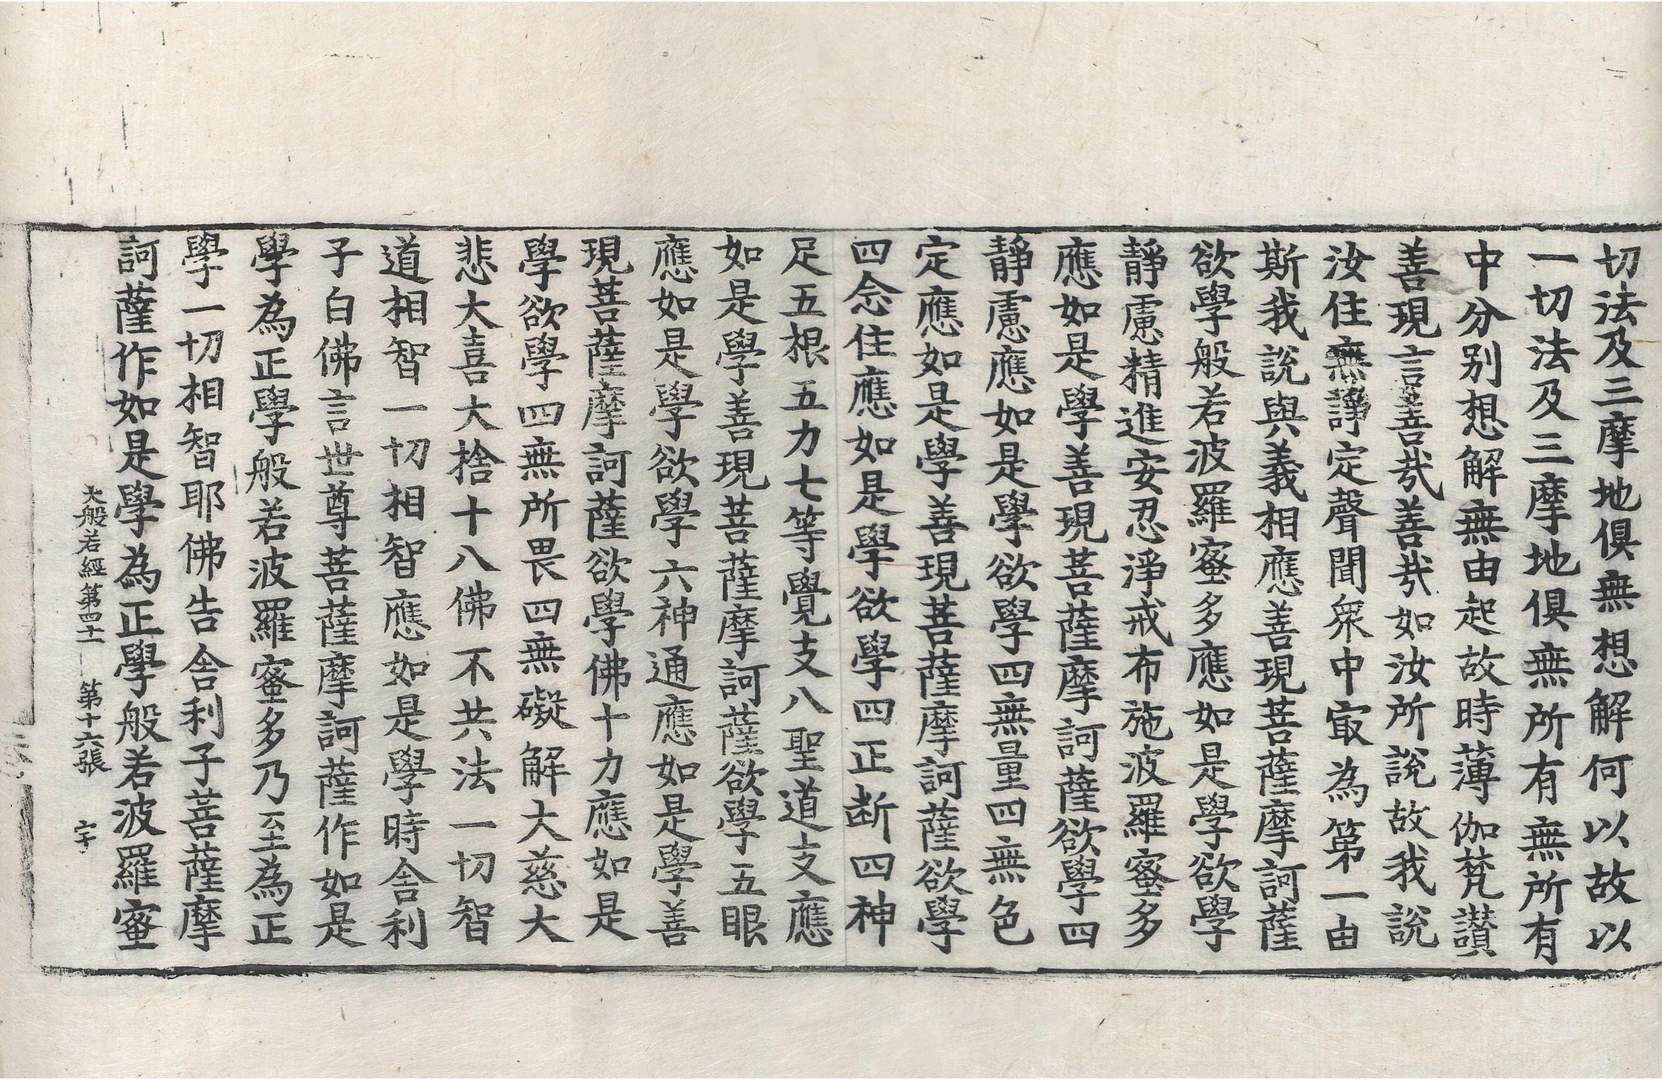 切法及三摩地俱無想解何以故以
一切法及三摩地俱無所有無所有
中分別想解無由起故時薄伽梵讃
善現言善哉善哉如汝所說故我說
汝住無諍定聲聞衆中㝡為第一由
斯我說與義相應善現菩薩摩訶薩
欲學般若波羅蜜多應如是學欲學
靜慮精進安忍淨戒布施波羅蜜多
應如是學善現菩薩摩訶薩欲學四
靜慮應如是學欲學四無量四無色
定應如是學善現菩薩摩訶薩欲學
四念住應如是學欲學四正断四神
足五根五力七等覺支八聖道支應
如是學善現菩薩摩訶薩欲學五眼
應如是學欲學六神通應如是學善
現菩薩摩訶薩欲學佛十力應如是
學欲學四無所畏四無礙解大慈大
悲大喜大捨十八佛不共法一切智
道相智一切相智應如是學時舍利
子白佛言世尊菩薩摩訶薩作如是
學為正學般若波羅蜜多乃至為正
學一切相智耶佛告舍利子菩薩摩
訶薩作如是學為正學般若波羅蜜
大般若經第四十一 第十六張 宇